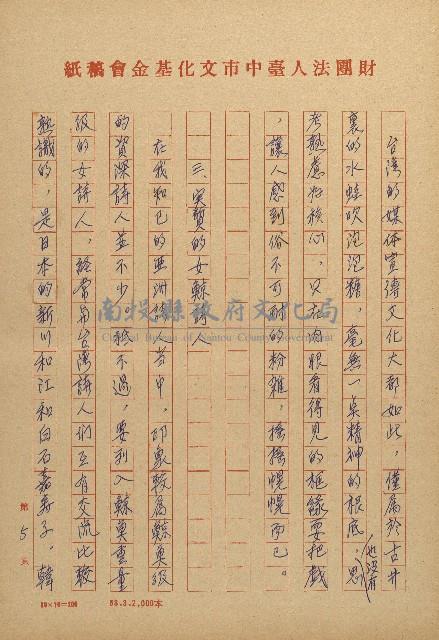 財團法人臺中市文化基金會稿紙
台灣的媒体宣傳文化大都如此，僅属於古井
裏的水蛙吹泡泡糖，毫無一奌精神的根底，也没有思
考熟慮好核心，只在肉眼看得見的框緣耍把戲
，讓人感到俗不可耐的粉雜，搖搖幌幌而已。
三、実質的女鯨詩人
在我知己的亞洲詩人羣中，印象較為鯨奌級
的資深詩人並不少，祇不過，要列入鯨奌重量
級的女詩人，經常用台灣詩人們互有交流比較
熟識的，是日本的新川和江和白石嘉寿子，韓
第5頁
20×10=200
83.3.2,000本
南投縣政府文化局
Cultural Bureau of Nantou County Government